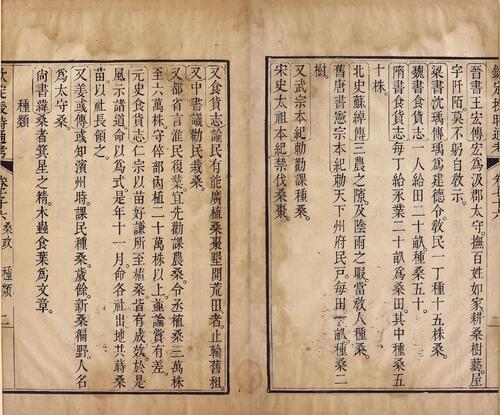 晉書王宏傳宏爲汲郡太守。撫百姓如家耕桑樹藝。屋
字阡陌。莫不躬自教示。
梁書沈瑀傳瑀爲建德令教民一丁種十五株桑。
魏書食貨志一人給田二十畝種桑五十。
隋書食貨志每丁給永業二十畝爲桑田。其中種桑五
十株。
北史蘇綽傳三農之隙。及陰雨之暇。當教人種桑。
舊唐書憲宗本紀勅天下州府民戶。每田一畝種桑二
樹。
又武宗本紀勅勸課種桑。
宋史太祖本紀禁伐桑棗。
又食貨志諭民有能廣植桑棗墾開荒田者。止輸舊租。
又中書議勸民栽桑。
又都省言淮民復業宜先勸課農桑。令丞植桑三萬株
至六萬株。守倅部內植二十萬株以上。並論賞有差。
元史食貨志仁宗以苗好謙所至植桑皆有成效。於是
風示諸道命以爲式。是年十一月。命各社出地共蒔桑
苗以社長領之。
又姜彧傳彧知濱州。時課民種桑。歲餘。新桑徧野。人名
爲太守桑。
尙書緯桑者箕星之精。木蟲食葉爲文章。
種類
欽定授時通考 卷七十六 桑政 種類 二